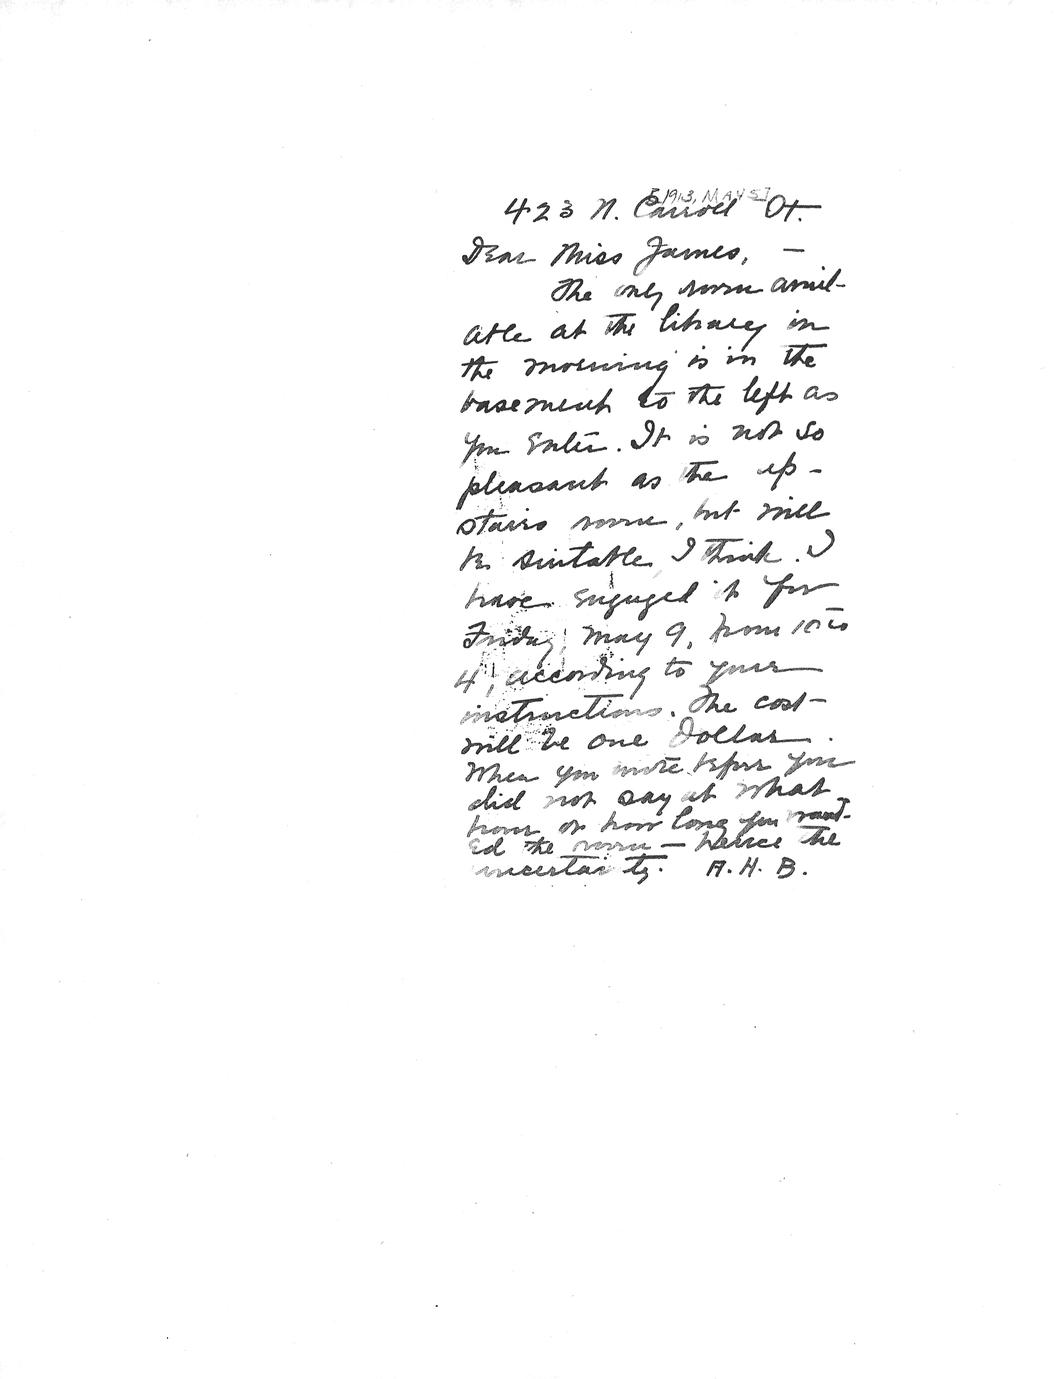 [1913, MAY 5]
423 N. Carroll St.
Dear Miss James, —
The only room avail-
able at the library in
the morning is in the
basement to the left as
you enter. It is not so
pleasant as the up-
stairs room, but will
be suitable, I think. I
have engaged it for
Friday, May 9, from 10 to
4, according to your
instructions. The cost
will be one Dollar.
When you wrote before you
did not say at what
hour or how long you want-
ed the room — hence the
uncertainty. A. H. B.